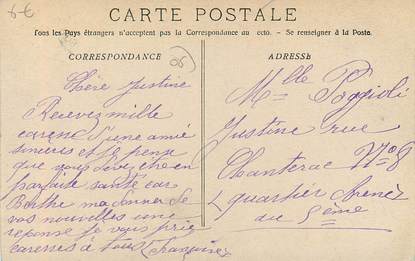 6€
CARTE POSTALE
Tous les Pays étrangers n'acceptent pas la Correspondance au recto. - Se renseigner à la Poste.
CORRESPONDANCE
Chère Justine
Recevez mille
d'une amie
sincères et je pense
que vous devez être en
parfaite santé car
Berthe ma donner de
vos nouvelles une
réponse je vous prie
caresses à tous Françoise
ADRESSE
Mlle Poggioli
Justine rue
Chanterac N° 8
quartier
au 5ème